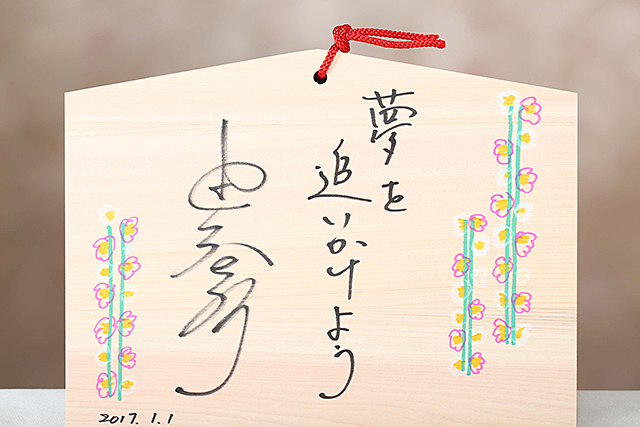 夢を
追いかけよう
2017.1.1